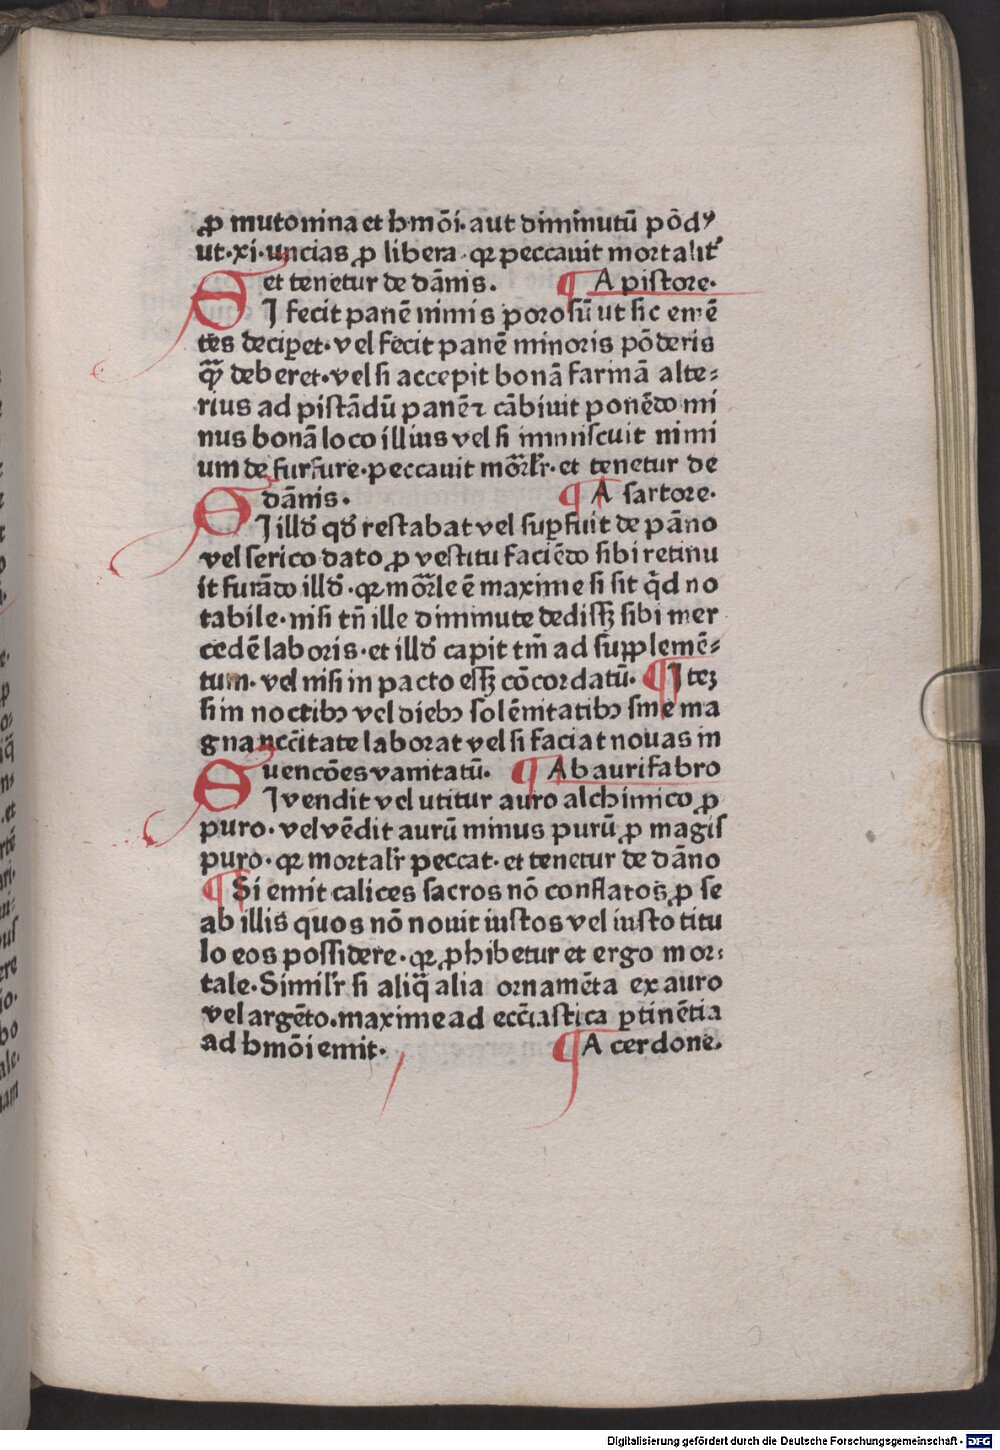 ꝓ mutonina et hꝰmōi. aut diminutū põdꝰ
ut·xi·uncias ꝓ libera·qꝛ peccauit mortalit᷑
et tenetur de dāmis. ¶ A pistore·
SI fecit panē nimis porosū ut sic emē
tes deciꝑet·vel fecit panē minoris põderis
qᷓꝫ deberet·vel si accepit bonā farinā alte⸗
rius ad pistādū panē ⁊ cābiuit ponēdo mi
nus bonā loco illius vel si inmiscuit nimi
um de furfure·peccauit moᷓrlr̃·et tenetur de
dāmis. ¶ A sartore·
SI illđ qđ restabat vel suꝑfuit de pāno
vel serico dato ꝓ vestitu faciēdo sibi retinu
it furādo illđ·qꝛ moᷓrle ē maxime si sit qͥd no
tabile·nisi tn̄ ille diminute dedissꝫ sibi mer
cedē laboris·et illđ capit tm̄ ad supplemē⸗
tum. vel nisi in pacto essꝫ cōcordatū. ¶ Iteꝫ
si in noctibꝰ vel diebꝰ solēnitatibꝰ sine ma
gna nccͨitate laborat vel si faciat nouas in
uencōes vanitatū. ¶ Ab aurifabro
SI vendit vel utitur auro alchimico ꝓ
puro·vel vēdit aurū minus purū ꝓ magis
puro·qꝛ mortalr̃ peccat·et tenetur de dāno
¶ Si emit calices sacros nō conflatos ꝓ se
ab illis quos nō nouit iustos vel iusto titu
lo eos possidere·qꝛ ꝓhibetur et ergo mor⸗
tale·Similr̃ si aliqᷓ alia ornamēta ex auro
vel argēto.maxime ad eccͨiastica ꝑtinētia
ad hꝰmōi emit· ¶ A cerdone.
Digitalisierung gefördert durch die Deutsche Forschungsgemeinschaft - DFG